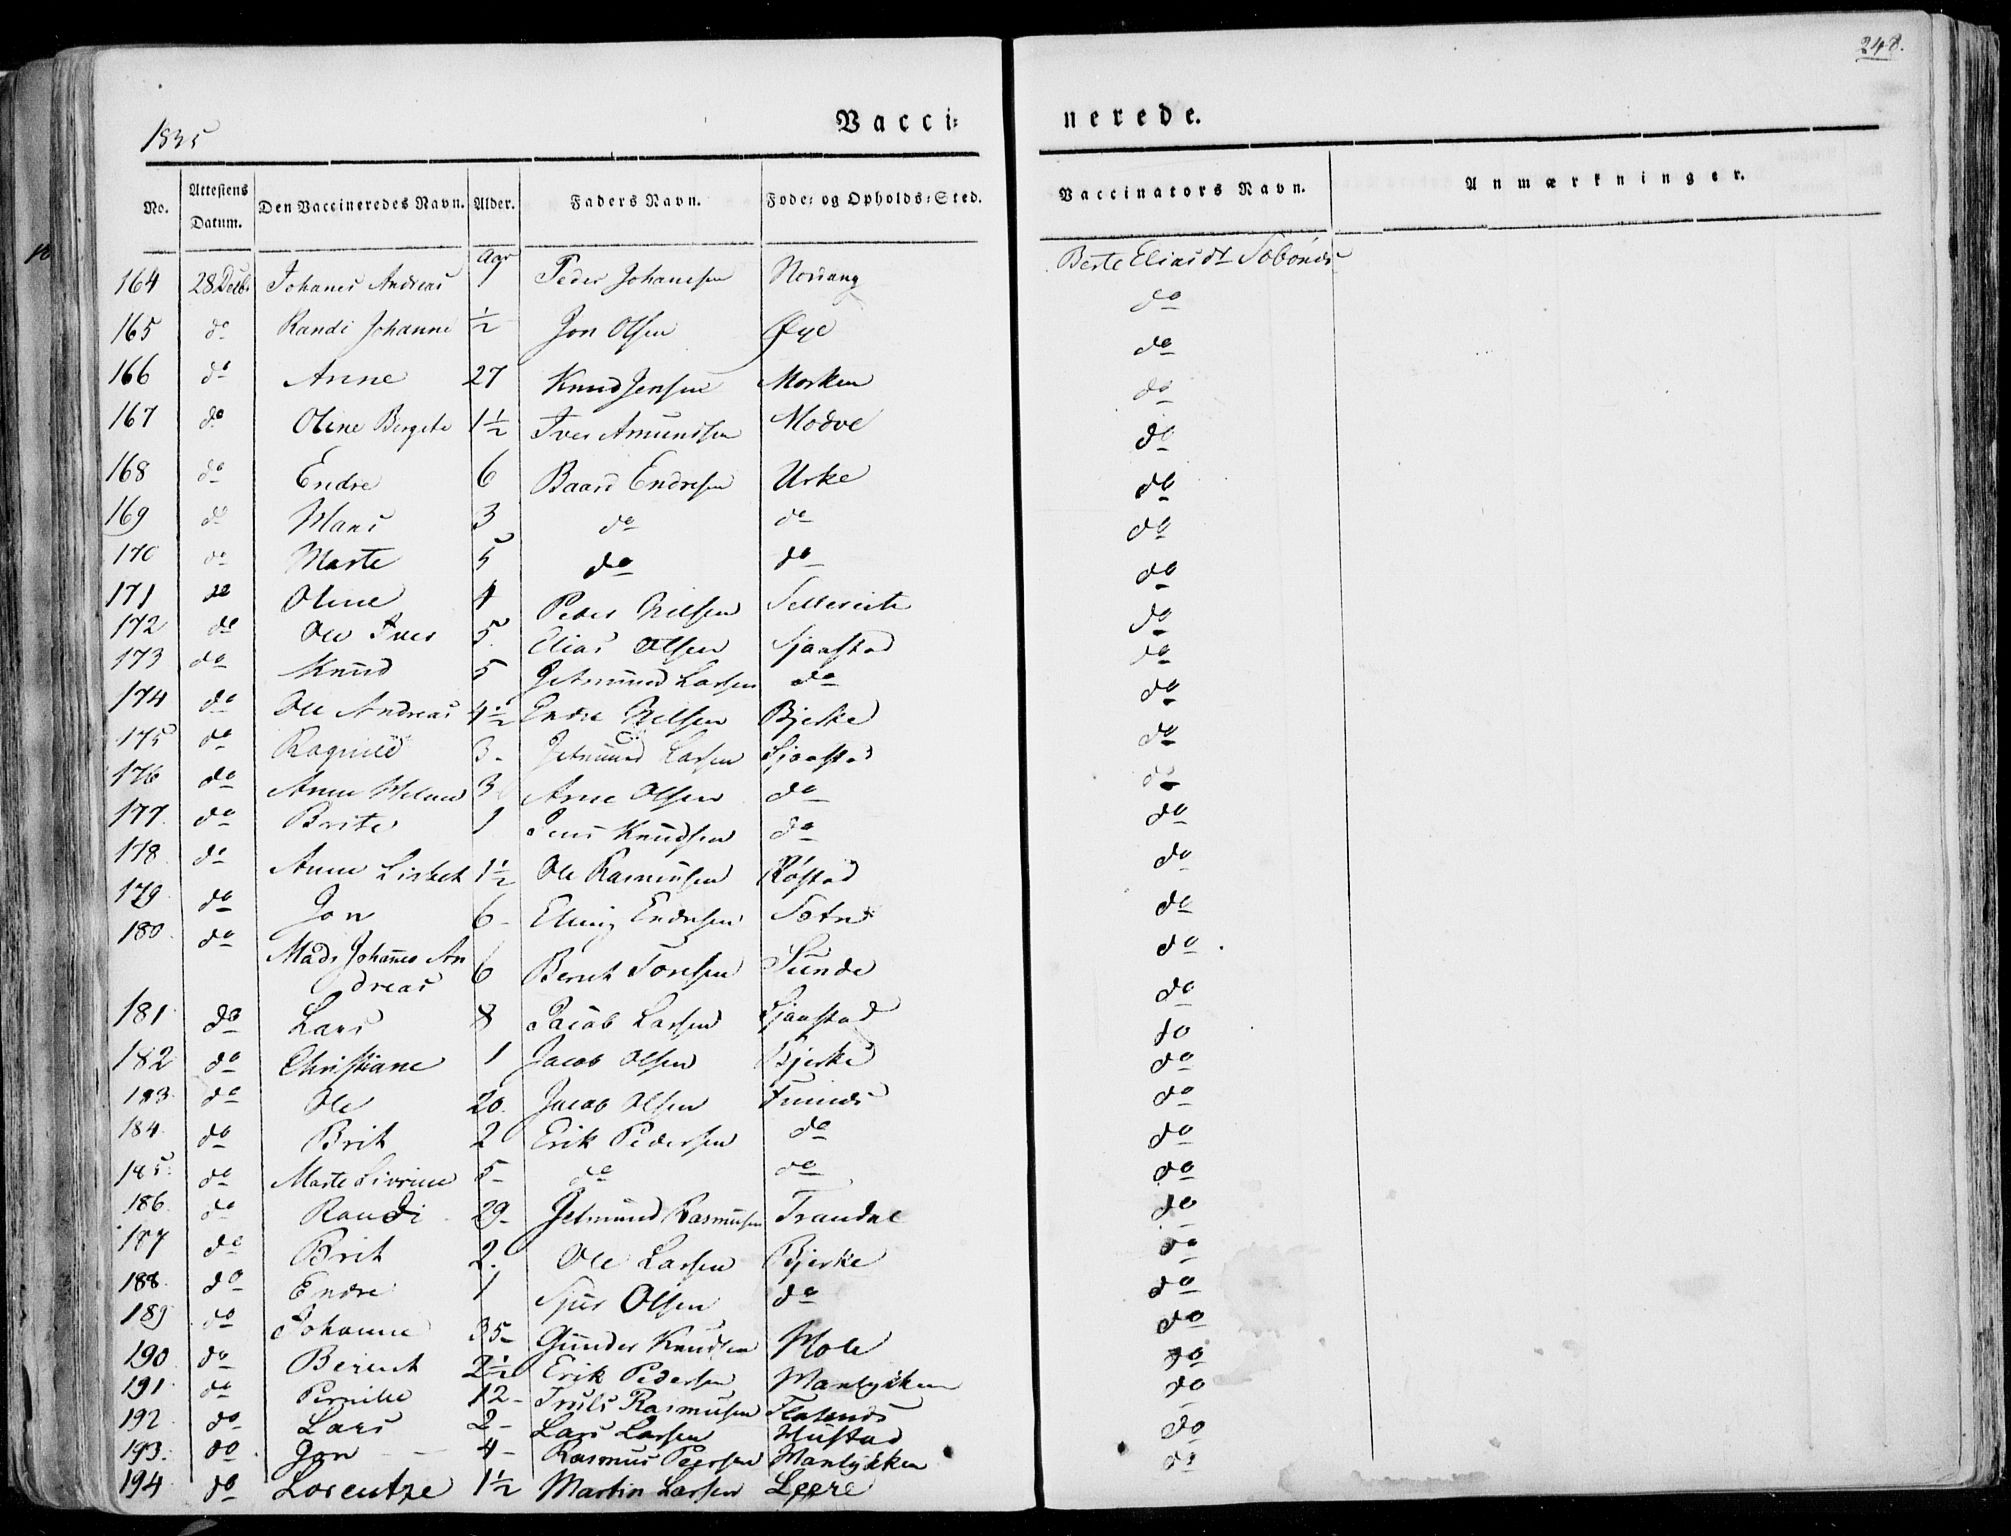 248.
1835
Vacci= nerede.
No. Attestens Datum. Den Vaccineredes Navn. Alder. Faders Navn. Føde= og Opholds=Sted. Vaccinators Navn. Anmærkninger.
Aar
164 28 Decbr Johanes Andreas 1 Peder Johanesen Norsang Berte Elias dt
165 do Randi Johanne ½ Jon Olsen Øye do
166 do Anne 27 Knud Jensen Morken do
167 do Oline Bergete 1½ Iver Amundsen Modve do
168 do Endre 6 Baard Endresen Urke do
169 do Hans 3 do do do
170 do Marte 5 do do do
171 do Oline 4 Peder Nilsen do
172 do Ole Iver 5. Elias Olsen Sjaastad do
173 do Knud 5 Jetmund Larsen do do
174 do Ole Andreas 4½ Endre Nilsen Bjerke do
175 do Ragnild 3- Jetmund Larsen Sjaastad do
176 do Anne Helene 3 Arne Olsen do do
177. do Brite 1 Jens Knudsen do do
178. do Anne Lisbet 1½ Ole Rasmusen Røstad do
179. do Jon 6- Elling Endresen do
180. do Mads Johannes An
dreas 6 Bernt Toresen Sunde do
181. do Lars 8 Jacob Larsen Sjaastad do
182 do Christiane 1 Jacob Olsen Bjerke do
183. do Ole 20. Jacob Olsen do
184. do Brit 2 Erik Pedersen do do
185. do Marte Sivrine 5- do do do
186. do Randi 29- Jetmund Rasmusen Trandal do
187 do Brit 2. Ole Larsen Bjerke do
188. do Endre 1 Sjur Olsen do do
189 do Johanne 35- Gunder Knudsen Mole do
190 do Berent 2½ Erik Pedersen Manlykken do
191. do Pernille 12- Truls Rasmusen do
192 do Lars 2- Lars Larsen Hustad do
193. do Jon 4- Rasmus Peersen Manlykken do
194 do Lorentze 1½ Martin Larsen Leere do